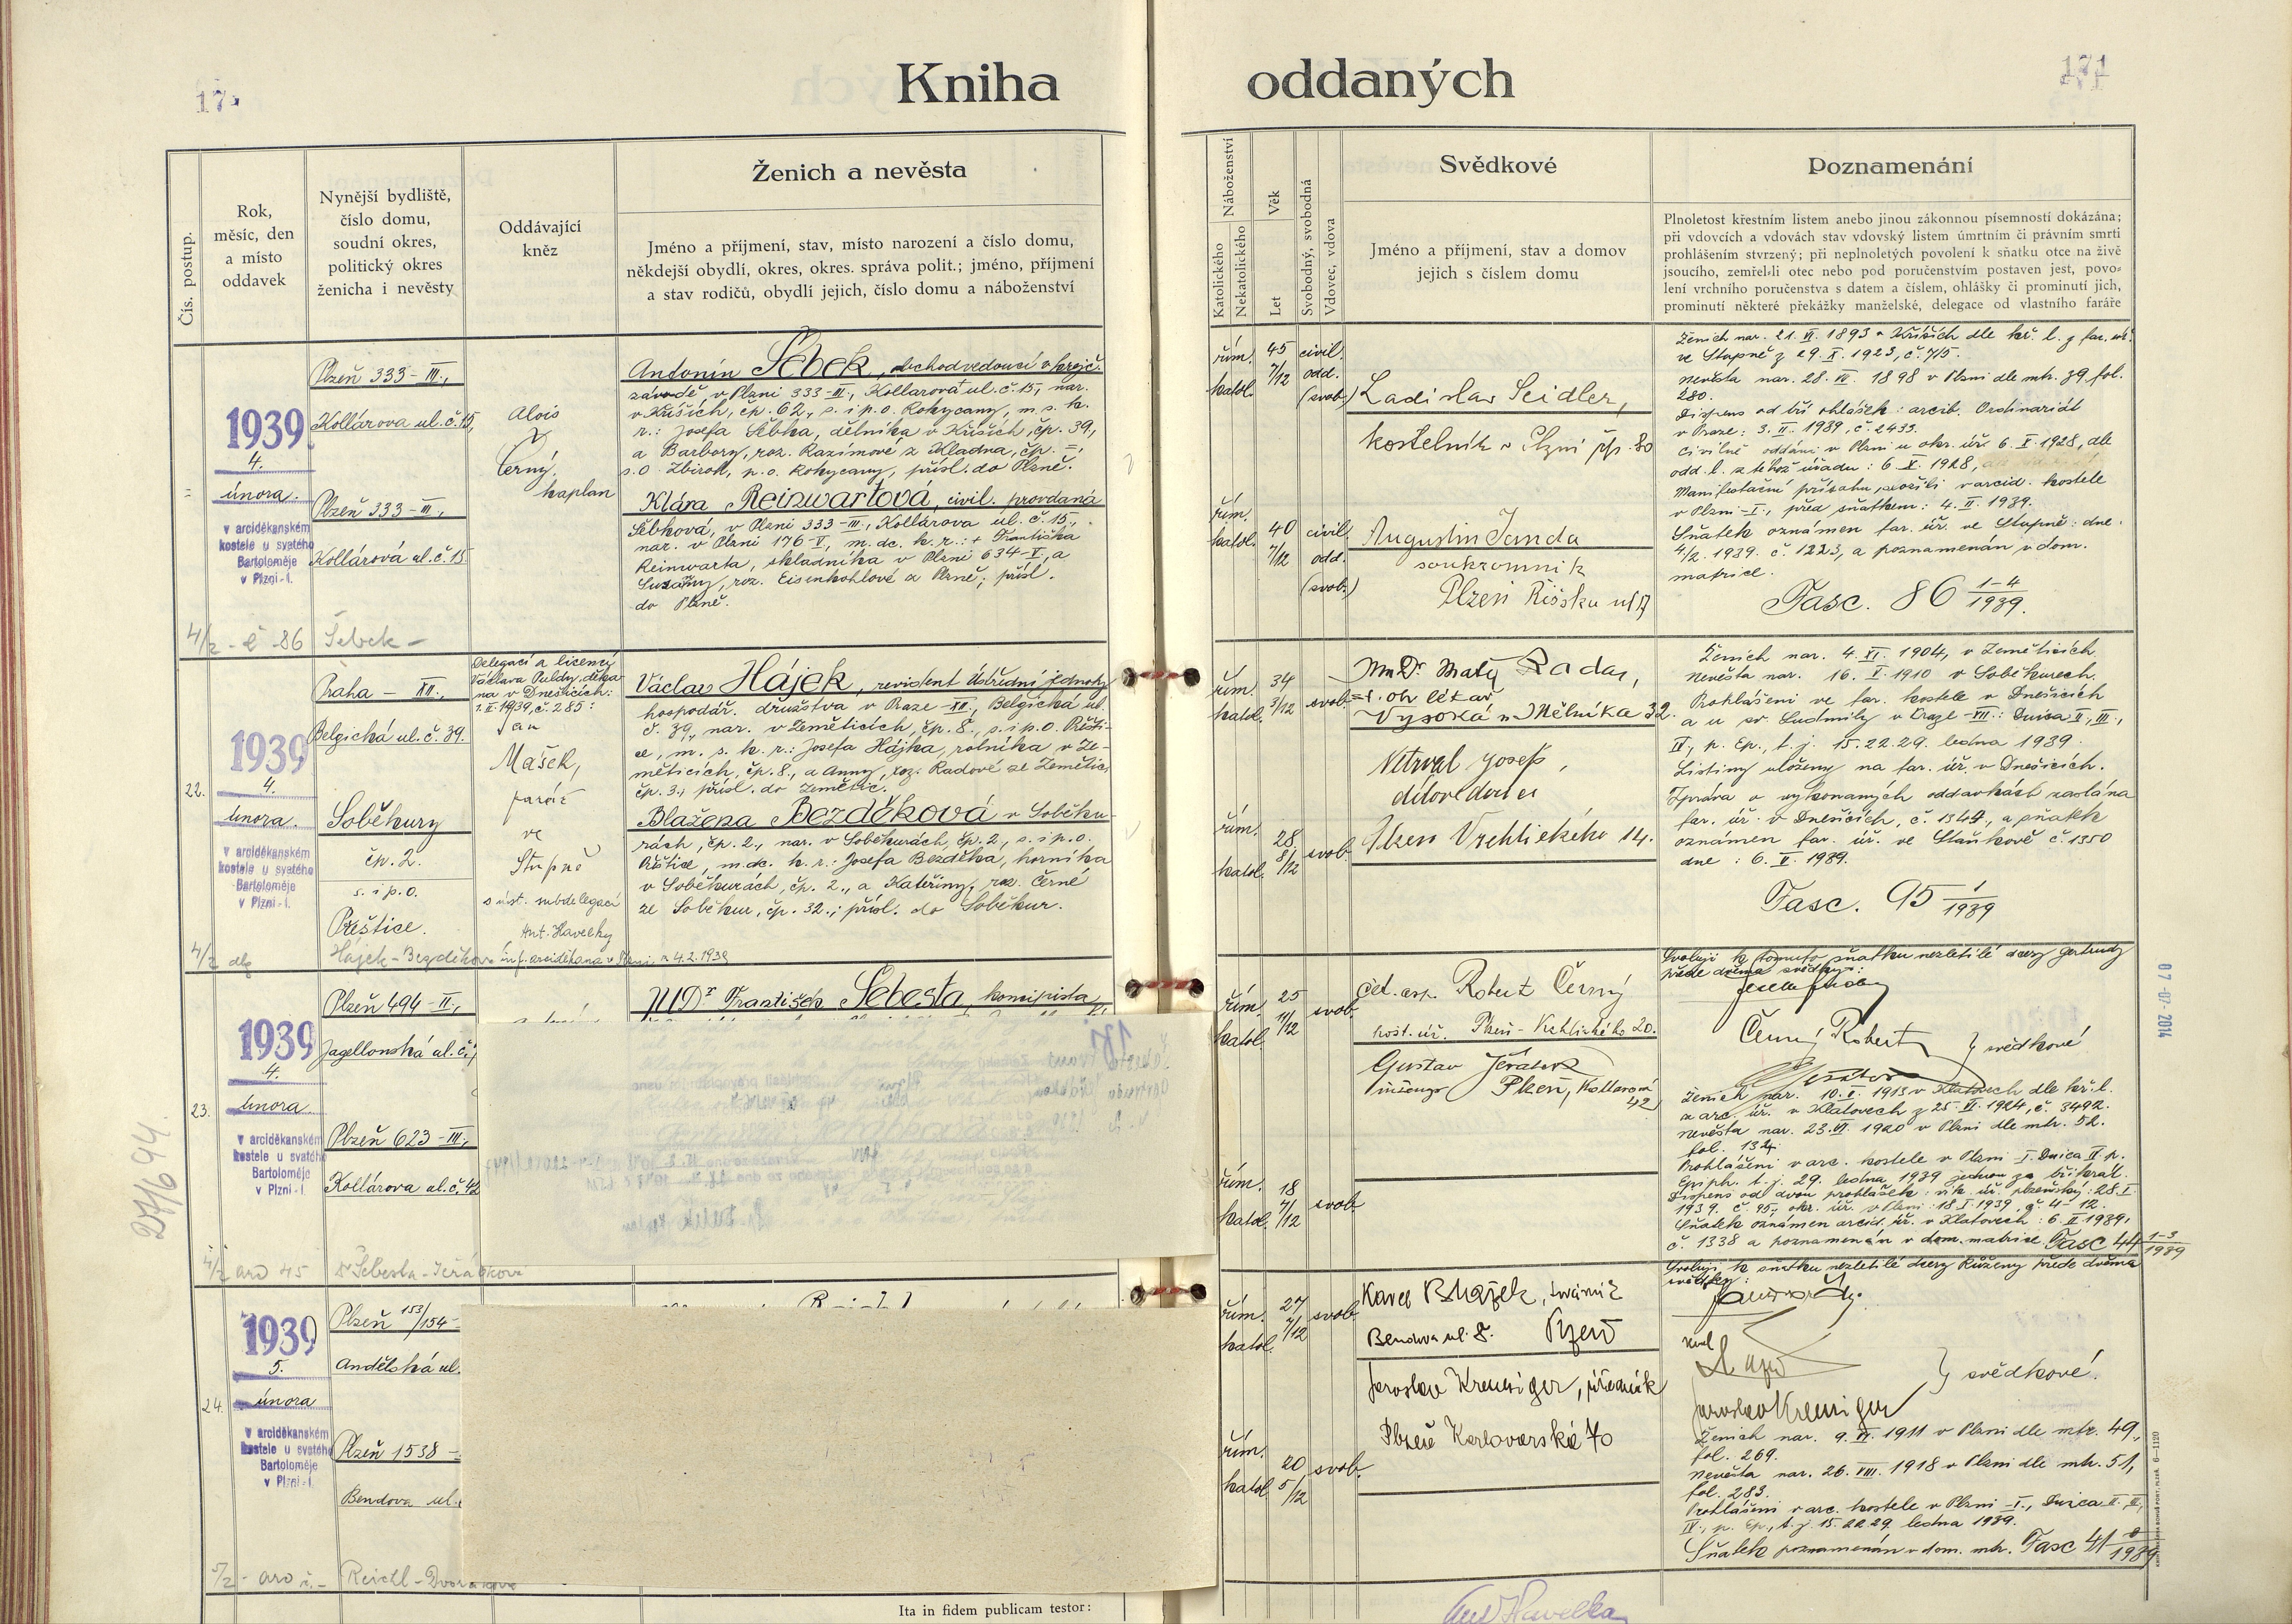 Kniha
oddaných
171
Čís. postup.
Rok,
měsíc, den
a místo
oddavek
Nynější bydliště,
číslo domu,
soudní okres,
politický okres
ženicha i nevěsty
Oddávající
kněz
Ženich a nevěsta
Jméno a příjmení, stav, místo narození a číslo domu,
někdejší obydlí, okres, okres. správa polit.; jméno, příjmení
a stav rodičů, obydlí jejich, číslo domu a náboženství
Náboženství
Katolického
Nekatolického
Věk
Let
Svobodný, svobodná
Vdovec, vdova
Svědkové
Jméno a příjmení, stav a domov
jejich s číslem domu
Poznamenání
Plnoletost křestním listem anebo jinou zákonnou písemností dokázána;
při vdovcích a vdovách stav vdovský listem úmrtním či právním smrti
prohlášením stvrzený; při neplnoletých povolení k sňatku otce na živě
jsoucího, zemřel-li otec nebo pod poručenstvím postaven jest, povo-
lení vrchního poručenstva s datem a číslem, ohlášky či prominutí jich,
prominutí některé překážky manželské, delegace od vlastního faráře
1939
4.
února.
v arciděkanském
kostele u svatého
Bartoloměje
v Plzni-I.
Plzeň 333-III.,
Kollárova ul. č. 15,
Plzeň 333-III.,
Kollárová ul. č. 15.
Alois
Černý,
kaplan
Antonín Šebek, obchodvedoucí v krejč.
závodě v Plzni 333-III., Kollárova ul. č. 15, nar.
v Křiších, čp. 62., s. i p. o. Rokycany, m. s. k.
r.: Josefa Šebka, dělníka v Křiších, čp. 39.,
a Barbory, roz. Kazimové z Kladna, čp. =,
s. o. Zbiroh, p. o. Rokycany, přísl. do Plzně.
Klára Reinwartová, civil. provdaná
Šebková, v Plzni 333-III., Kollárova ul. č. 15.,
nar. v Plzni 176-V., m. dc. k. r.: + Františka
Reinwarta, skladníka v Plzni 634-V., a
Suzanny, roz. Eisenkohlové z Plzně; přísl.
do Plzně.
4/2 - č 86 Šebek -
řím.
katol.
45
7/12
civil.
odd.
(svob.)
řím.
katol.
40
7/12
civil.
odd.
(svob.)
Ladislav Seidler,
kostelník v Plzni čp. 80
Augustin Janda
soukromník
Ženich nar. 21. VI. 1893 v Křiších dle kř. l. z far. úř.
ve Stupně z 29. X. 1923, č. 715.
Nevěsta nar. 28. VI. 1898 v Plzni dle mtr. 39. fol.
280.
Dispens od tří ohlášek: arcib. Ordinariát
v Praze: 3. II. 1939, č. 2433.
Civilně oddáni v Plzni u okr. úř. 6. X. 1928, dle
odd. l. z téhož úřadu: 6. X. 1928,
Manifestační přísahu složili v arcid. kostele
v Plzni-I., před sňatkem: 4. II. 1939.
Sňatek oznámen far. úř. ve Stupně: dne
4/2. 1939. č. 1223, a poznamenán v dom.
matrice.
Fasc. 86 1-4/1939.
22.
1939
4.
února.
v arciděkanském
kostele u svatého
Bartoloměje
v Plzni-I.
Praha - XII.,
Belgická ul. č. 39.
Soběkury
čp. 2.
s. i p. o.
Přeštice.
Delegací a licencí
Václava Puldy, děka
na v Dnešicích:
1. II. 1939, č. 285:
Jan
Mašek,
farář
ve
Stupně
s úst. subdelegací
Ant. Havelky
arciděkana v Plzni, z 4.2.1939
Václav Hájek, revident Ústřední jednoty
hospodář. družstva v Praze-XII., Belgická ul.
č. 39, nar. v Zeměticích, čp. 8., s. i p. o. Přešti-
ce, m. s. k. r.: Josefa Hájka, rolníka v Ze-
měticích, čp. 8., a Anny, roz. Radové ze Zemětic,
čp. 3., přísl. do Zemětic.
Blažena Bezděková v Soběku-
rách, čp. 2., nar. v Soběkurách, čp. 2., s. i p. o.
Přeštice, m. dc. k. r.: Josefa Bezděka, horníka
v Soběkurách, čp. 2., a Kateřiny, roz. Černé
ze Soběkur, čp. 32.; přísl. do Soběkur.
4/2 Hájek-Bezděková
řím.
katol.
34
3/12
svob.
řím.
katol.
28
8/12
svob.
MUDr. Matěj Rada,
lékař
Vysoká u Mělníka 32.
Netrval Josef,
Plzeň Vrchlického 14.
Ženich nar. 4. XI. 1904, v Zeměticích.
Nevěsta nar. 16. V. 1910 v Soběkurech.
Prohlášeni ve far. kostele v Dnešicích
a u sv. Ludmily v Praze-XII.: Dnica II., III.,
IV., p. Ep., t. j. 15. 22. 29. ledna 1939.
Listiny uloženy na far. úř. v Dnešicích.
Zpráva o vykonaných oddavkách zaslána
far. úř. v Dnešicích, č. 1344, a sňatek
oznámen far. úř. ve Staňkově č. 1350
dne: 6. II. 1939.
Fasc. 95 1/1939
23.
1939
4.
února.
v arciděkanském
kostele u svatého
Bartoloměje
v Plzni-I.
Plzeň 494-II.,
Jagellonská ul. č.
Plzeň 623-III.,
Kollárova ul. č. 42
JUDr František Šebesta, koncipista
4/2 aro 45 Dr Šebesta-Jeřábková
řím.
katol.
25
11/12
svob.
řím.
katol.
18
7/12
svob.
Robert Černý
Plzeň - Vrchlického 20.
Gustav Jeřábek
Plzeň, Kollárova
42
Svoluji k tomuto sňatku nezletilé dcery Gertrudy
přede dvěma svědky:
Černý Robert
} svědkové
Ženich nar. 10. II. 1913 v Klatovech dle kř. l.
z arc. úř. v Klatovech z 25. VI. 1924, č. 3492.
Nevěsta nar. 23. VI. 1920 v Plzni dle mtr. 52.
fol. 132.
Prohlášeni v arc. kostele v Plzni-I. Dnica IV. p.
Epiph. t. j. 29. ledna 1939 jednou za třikrát.
Dispens od dvou prohlášek: vik. úř. plzeňský: 28. I.
1939. č. 95, okr. úř. v Plzni: 18. I. 1939, č. 4-12.
Sňatek oznámen arcid. úř. v Klatovech: 6. II. 1939,
č. 1338 a poznamenán v dom. matrice. Fasc 44 1-3/1939
24.
1939
5.
února
v arciděkanském
kostele u svatého
Bartoloměje
v Plzni-I.
Plzeň 153/154-
Andělská ul.
Plzeň 1538-
Bendova ul.
5/2 - aro č. - Reichl-Dvořáková
řím.
katol.
27
7/12
svob.
řím.
katol.
20
5/12
svob.
Karel Blažek,
Bendova ul. 8. Plzeň
Jaroslav Kreusiger, úředník
Plzeň Karlovarská 70
Svoluji k sňatku nezletilé dcery Růženy přede dvěma
svědky:
Jaroslav Kreusiger
} svědkové.
Ženich nar. 9. VI. 1911 v Plzni dle mtr. 49.,
fol. 269.
Nevěsta nar. 26. VIII. 1918 v Plzni dle mtr. 51,
fol. 283.
Prohlášeni v arc. kostele v Plzni-I., Dnica II., III.,
IV., p. Ep., t. j. 15. 22. 29. ledna 1939.
Sňatek poznamenán v dom. mtr. Fasc 41
27/694
07-07-2014
Ita in fidem publicam testor:
Ant Havelka